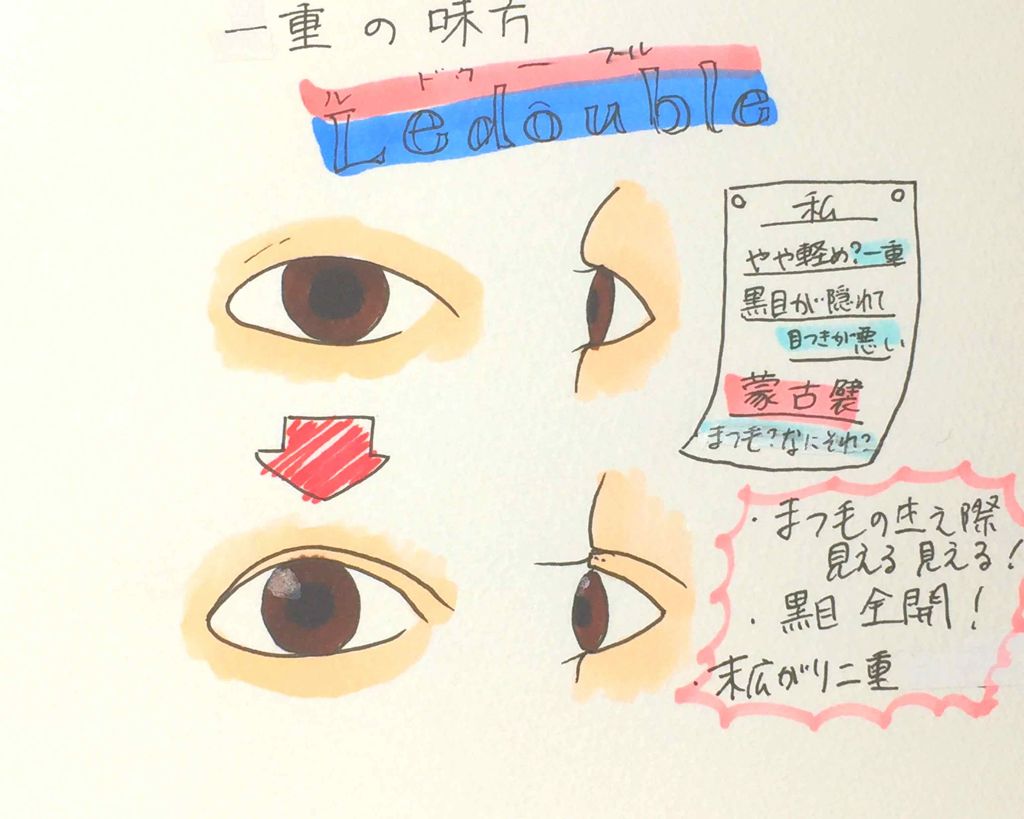 一重の味方
ルドゥーブル
Ledôuble
私
やや軽め?一重
黒目が隠れて
目つきが悪い
蒙古襞
まつ毛?なにそれ?
・まつ毛の生え際
見える見える!
・黒目全開!
・末広がり二重